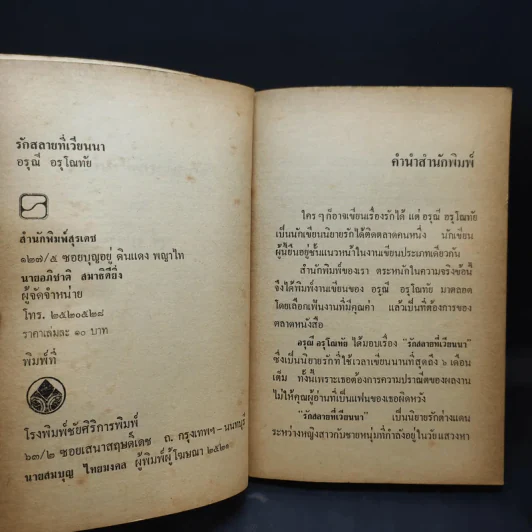 รักสลายที่เวียนนา
อรุณี อรุโณทัย
สำนักพิมพ์สุรเดช
๑๒๗/๕ ซอยบุญอยู่ ดินแดง พญาไท
นายอภิชาติ สมาธิดียิ่ง
ผู้จัดจำหน่าย
โทร. ๒๕๒๐๕๒๘
ราคาเล่มละ ๑๐ บาท
พิมพ์ที่
โรงพิมพ์ชัยศิริการพิมพ์
๖๓/๒ ซอยเสนาสฤษดิ์เดช ถ. กรุงเทพฯ - นนทบุรี
นายสมบุญ ไทยมงคล ผู้พิมพ์ผู้โฆษณา ๒๕๒๑
คำนำสำนักพิมพ์
ใคร ๆ ก็อาจเขียนเรื่องรักได้ แต่ อรุณี อรุโณทัย
เป็นนักเขียนนิยายรักได้ติดตลาดคนหนึ่ง นักเขียน
ผู้นี้ยืนอยู่ชั้นแนวหน้าในงานเขียนประเภทเดียวกัน
สำนักพิมพ์ของเรา ตระหนักในความจริงข้อนี้
จึงได้พิมพ์งานเขียนของ อรุณี อรุโณทัย มาตลอด
โดยเลือกเฟ้นงานที่มีคุณค่า แล้วเป็นที่ต้องการของ
ตลาดหนังสือ
อรุณี อรุโณทัย ได้มอบเรื่อง "รักสลายที่เวียนนา"
ซึ่งเป็นนิยายรักที่ใช้เวลาเขียนนานที่สุดถึง ๖ เดือน
เต็ม ทั้งนี้เพราะเธอต้องการความปราณีตของผลงาน
ไม่ให้คุณผู้อ่านที่เป็นแฟนของเธอผิดหวัง
"รักสลายที่เวียนนา" เป็นนิยายรักต่างแดน
ระหว่างหญิงสาวกับชายหนุ่มที่กำลังอยู่ในวัยแสวงหา